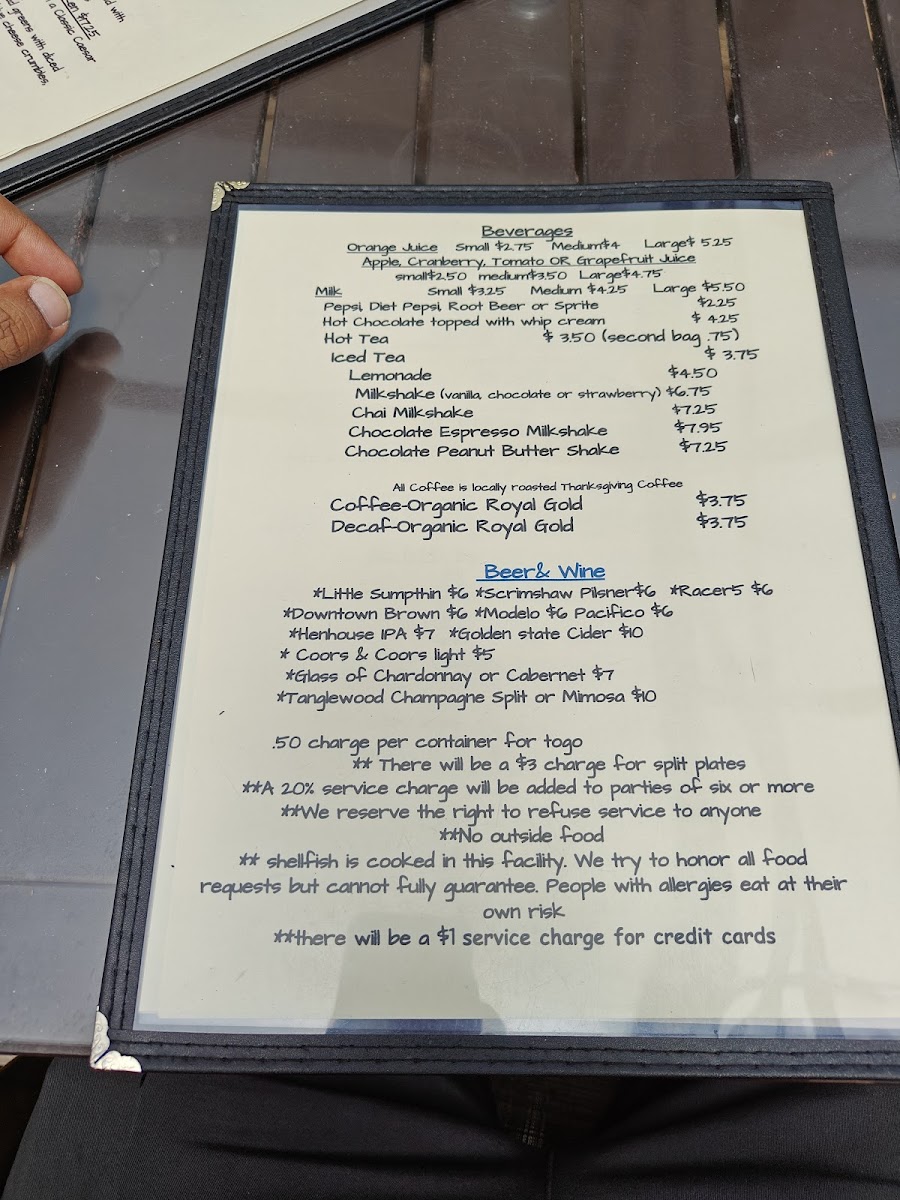 d with
n a Classic Caesar
en $7.25
d greens with diced
cheese crumbles,
Beverages
Orange Juice Small $2.75 Medium$4 Large$ 5.25
Apple, Cranberry, Tomato OR Grapefruit Juice
small$2.50 medium$3.50 Large$4.75
Milk Small $3.25 Medium $4.25 Large $5.50
Pepsi, Diet Pepsi, Root Beer or Sprite $2.25
Hot Chocolate topped with whip cream $ 4.25
Hot Tea $ 3.50 (second bag .75)
Iced Tea $ 3.75
Lemonade $4.50
Milkshake (vanilla, chocolate or strawberry) $6.75
Chai Milkshake $7.25
Chocolate Espresso Milkshake $7.95
Chocolate Peanut Butter Shake $7.25
All Coffee is locally roasted Thanksgiving Coffee
Coffee-Organic Royal Gold $3.75
Decaf-Organic Royal Gold $3.75
Beer& Wine
*Little Sumpthin $6 *Scrimshaw Pilsner$6 *Racer5 $6
*Downtown Brown $6 *Modelo $6 Pacifico $6
*Henhouse IPA $7 *Golden state Cider $10
* Coors & Coors light $5
*Glass of Chardonnay or Cabernet $7
*Tanglewood Champagne Split or Mimosa $10
.50 charge per container for togo
** There will be a $3 charge for split plates
**A 20% service charge will be added to parties of six or more
**We reserve the right to refuse service to anyone
**No outside food
** shellfish is cooked in this facility. We try to honor all food
requests but cannot fully guarantee. People with allergies eat at their
own risk
**there will be a $1 service charge for credit cards